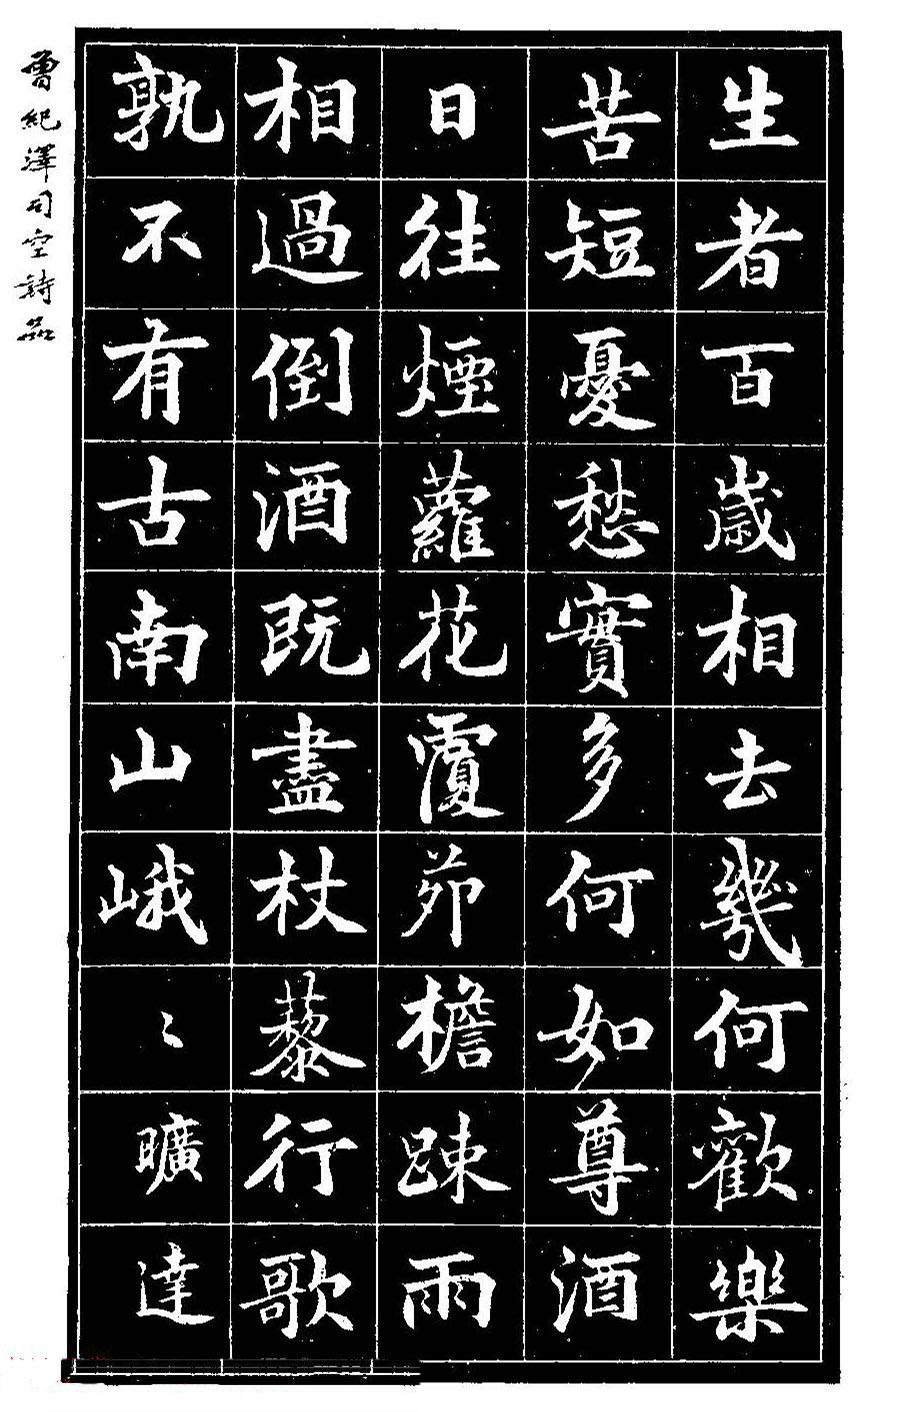 生者百歲相去幾何歡樂
苦短憂愁實多何如尊酒
日往煙蘿花覆茆檐踈雨
相過倒酒既盡杖藜行歌
孰不有古南山峨〻曠達
曾紀澤司空詩品